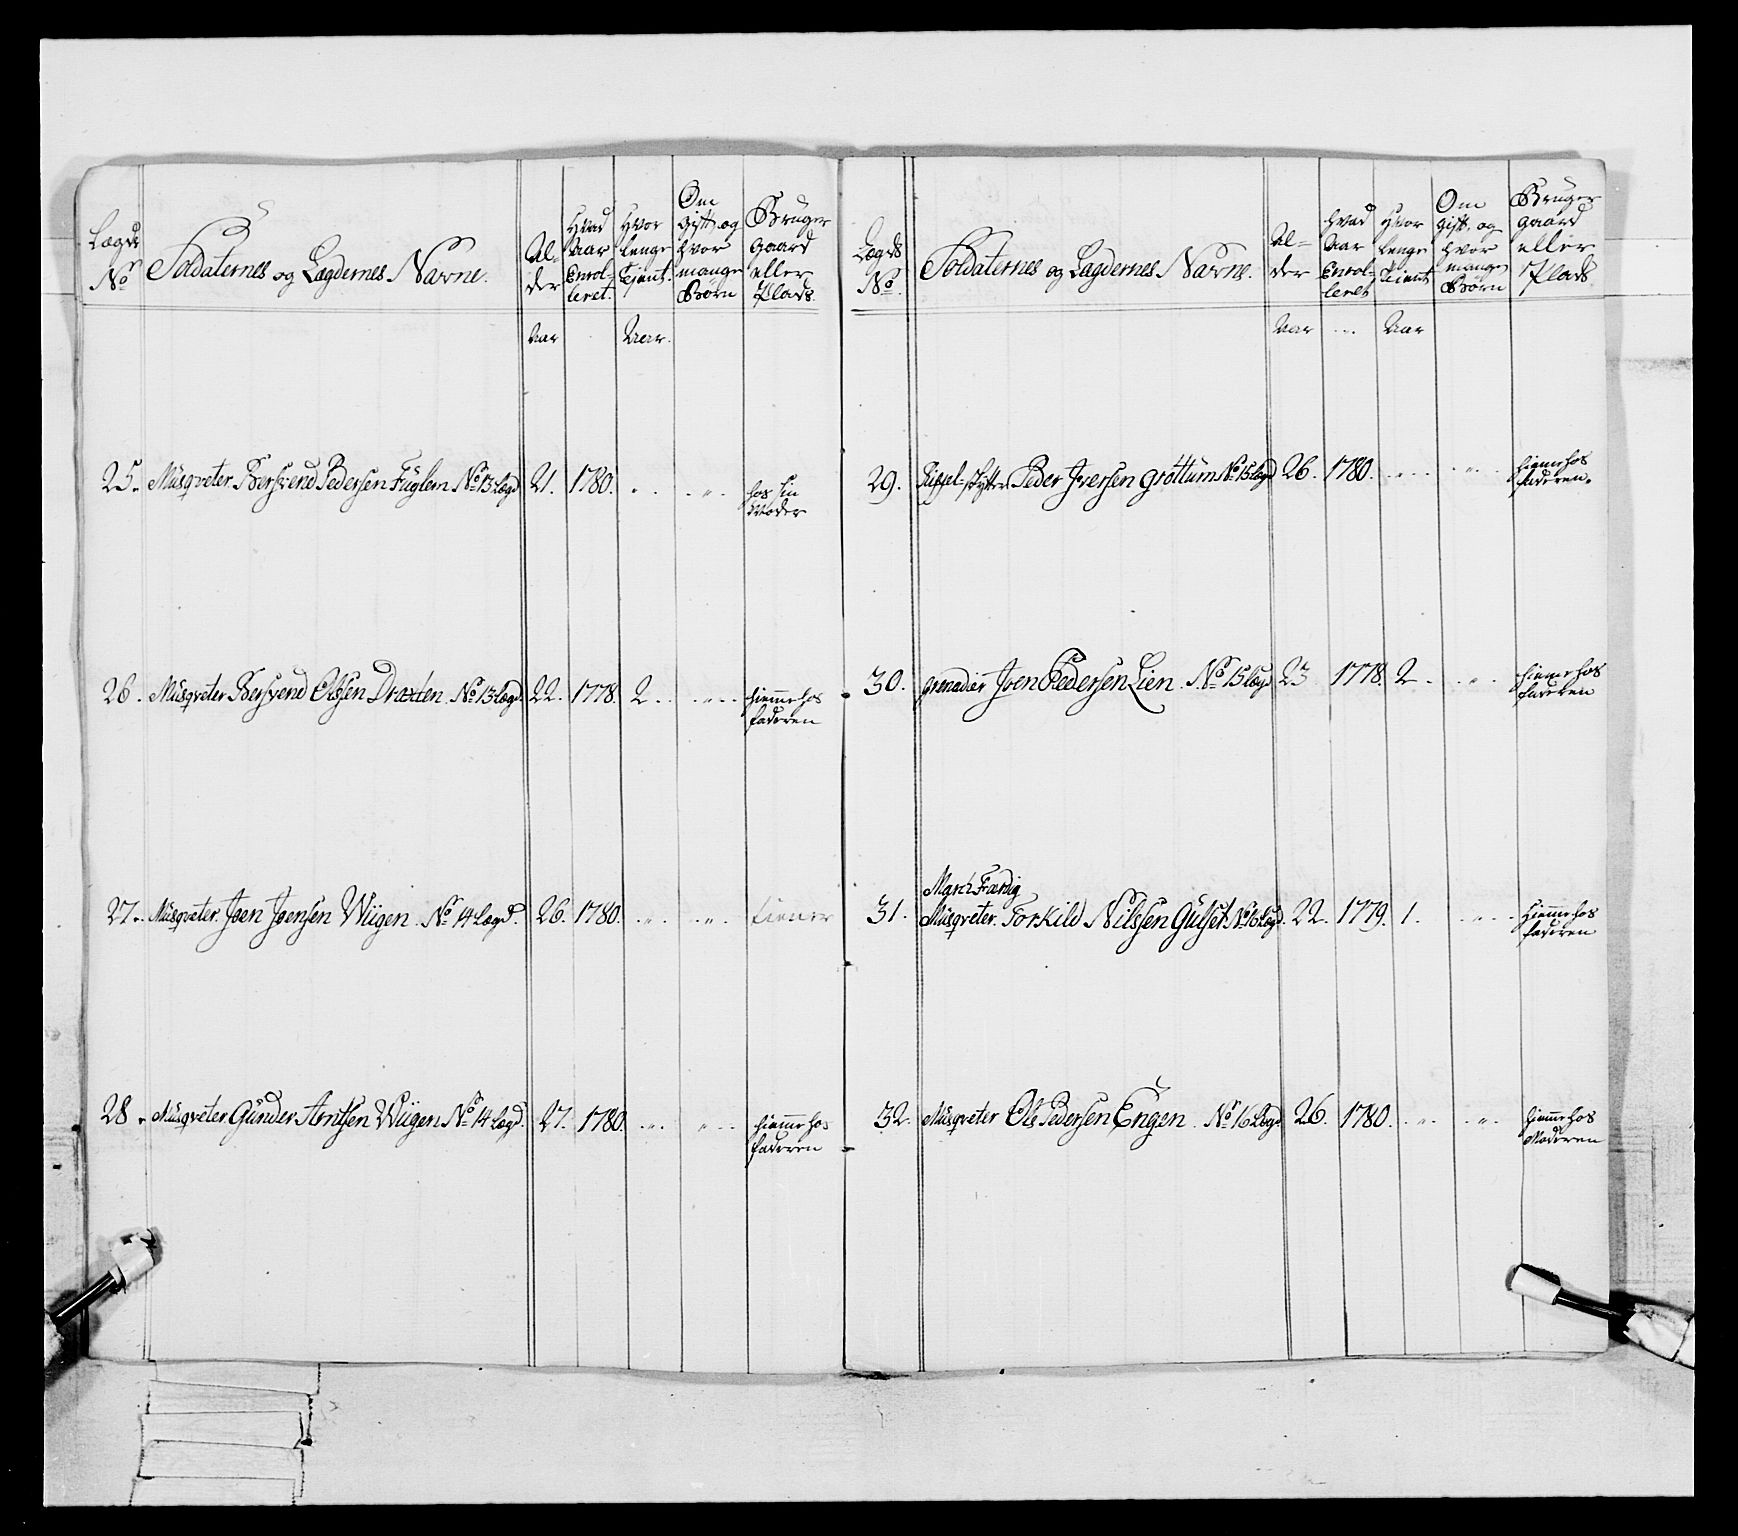 Lægds No
Soldaternes og Lægdernes Navne.
Al-der
Hvad Aar Enrol-leret.
Hvor lenge Tient.
Om gift, og hvor mange Børn
Bruger gaard eller Plads.
Aar
Aar.
25. Musqveter Bersvend Pedersen Fuglem No 13 Lægd 21. 1780. hos sin Moder
26. Musqveter Bersvend Olssen Draxten. No 13 Lægd. 22. 1778. 2. hiemme hos faderen
27. Musqveter. Joen Joensen Wiigen. No 14 Lægd. 26. 1780. tiener
28. Musqveter. Gunder Arntsen Wiigen No 14 Lægd. 27. 1780. hiemme hos faderen
Lægds No.
Soldaternes og Lægdernes Navne.
Al-der
Hvad Aar Enrol-leret
Hvor lenge Tient
Om gift, og hvor mange Børn
Bruger gaard eller Plads
Aar
Aar
29. Riffel-skytter. Peder Iversen grøttum No 15 Lægd 26. 1780. hieme hos faderen.
30. grenadier Joen Pedersen Lien. No 15 Lægd 23 1778. 2. hieme hos faderen
March Færdig
31. Musqveter. Torkild Nilssen Gulset No 16 Lægd. 22. 1779. 1. hiemme hos faderen
32. Musqveter Ole Pedersen Engen. No 16 Lægd 26. 1780. hiemme hos Moderen